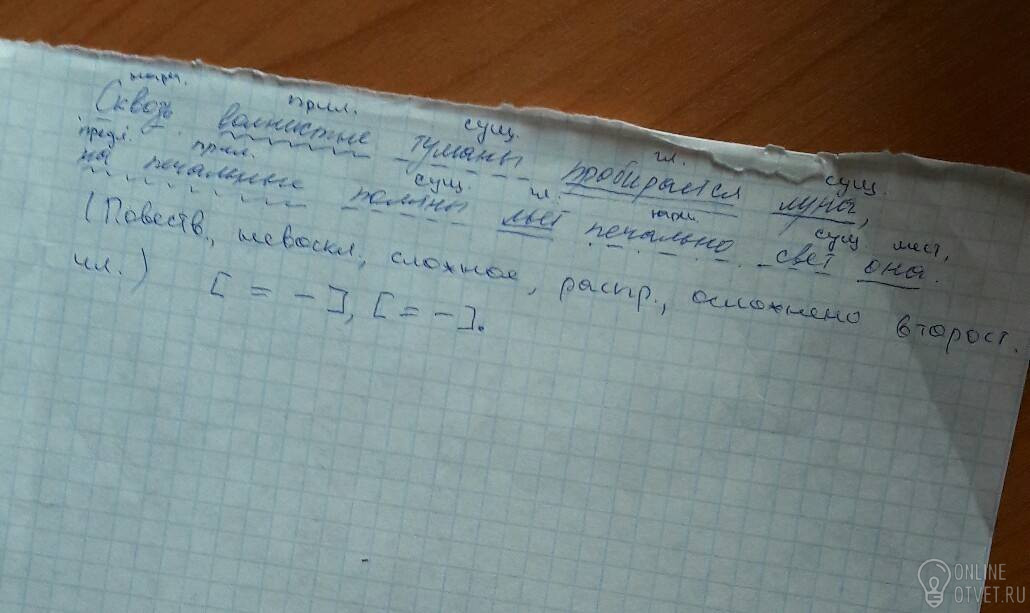 нареч. прил. сущ. гл. сущ.
Сквозь волнистые туманы пробирается луна,
предл. прил. сущ. гл. нареч. сущ мест.
на печальные поляны льёт печально свет она.
(Повеств., невоскл, сложное, распр., осложнено второст.
чл.) [ = - ], [ = - ].
ONLINE
OTVET.RU